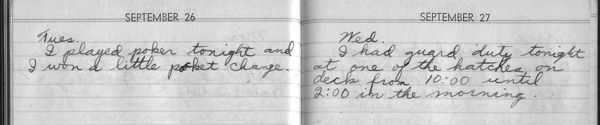 SEPTEMBER 26
Tues.
I played poker tonight and
I won a little pocket change.
SEPTEMBER 27
Wed.
I had guard duty tonight
at one of the hatches on
deck from 10:00 until
2:00 in the morning.